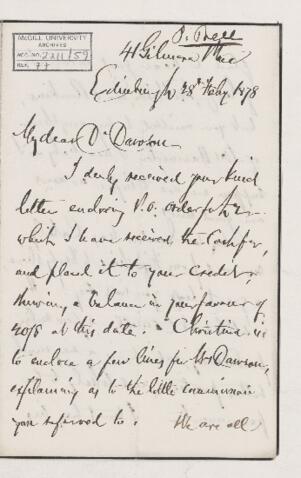 McGILL UNIVERSITY
ARCHIVES
ACC. NO. 2211/59
REF. 77
P. Bell
41 Gilmore Place
Edinburgh 28th Feby 1878
My dear Dr Dawson
I duly received your kind
letter enclosing P.O. order for
which I have received the Cash for,
and placed it to your credit,
showing a balance in your favour of
40/8 at this date. Christina is
to enclose a few lines for Mrs Dawson,
explaining as to the little commission
you referred to. We are all